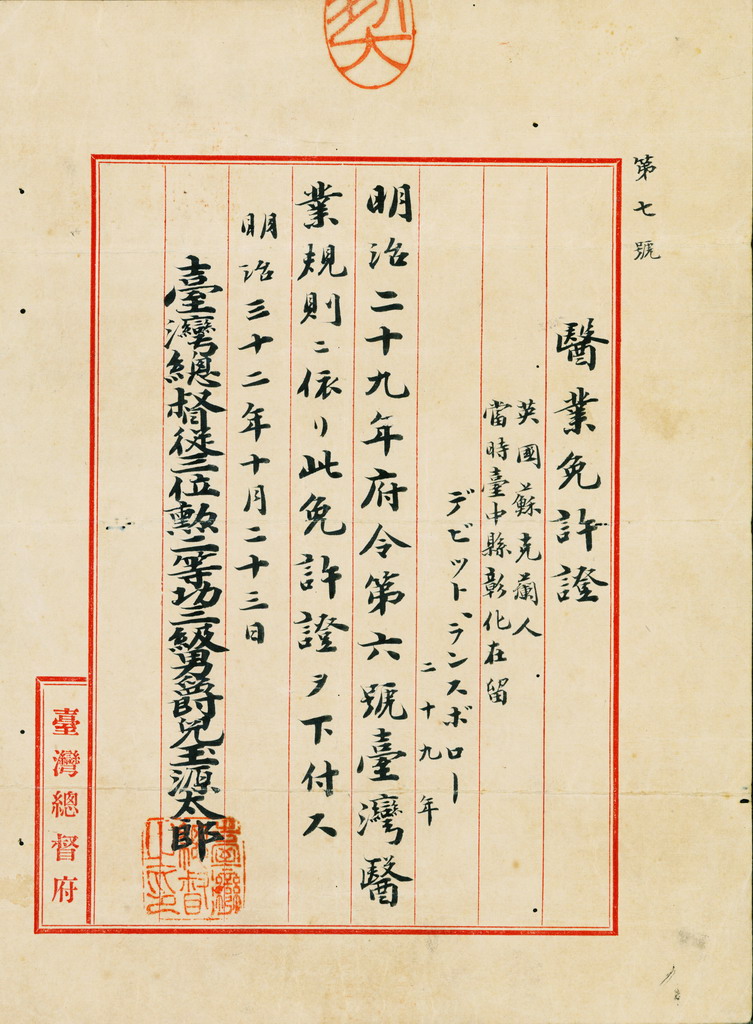 第七號
醫業免許證
英國蘇克蘭人
當時臺中縣彰化在留
デビット、ランスボロー
二十九年
明治二十九年府令第六號臺灣醫
業規則ニ依リ此免許證ヲ下付ス
明治三十二年十月二十三日
臺灣總督從三位勲二等功三級男爵兒玉源太郎
臺灣總督之印
臺灣總督府